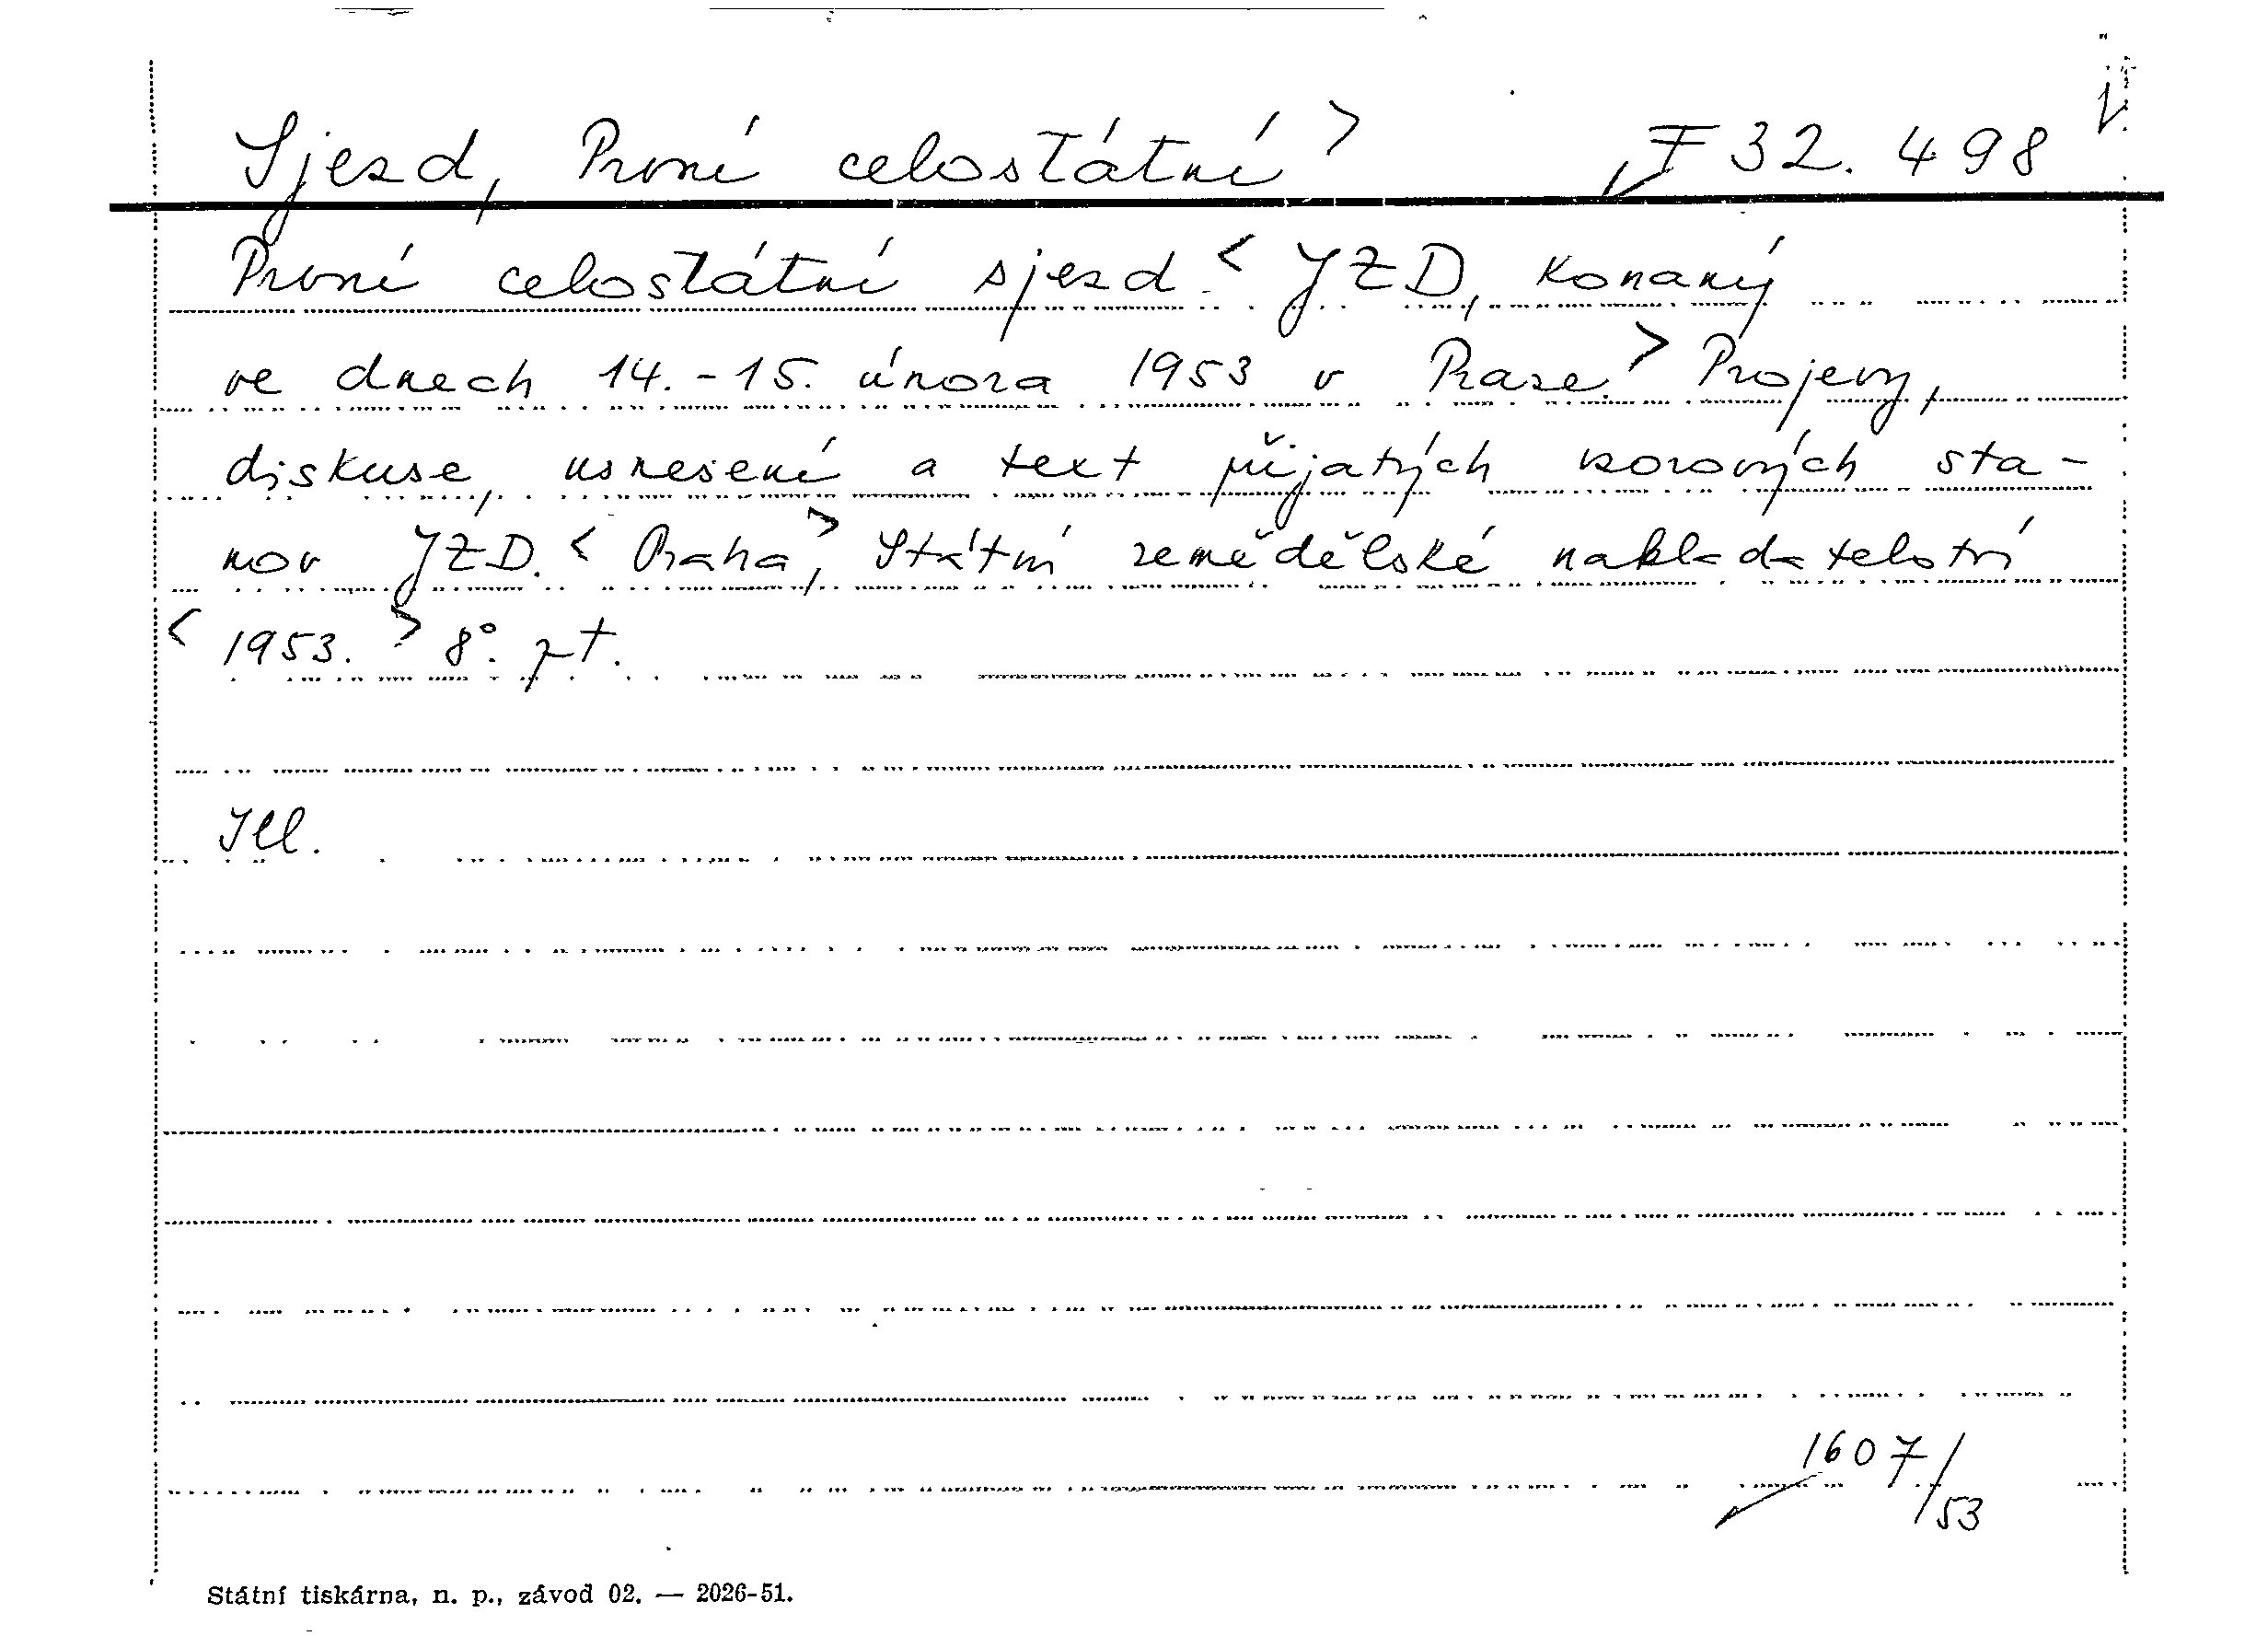 Sjezd, První celostátní > F 32.498
První celostátní sjezd < JZD, konaný
ve dnech 14.-15. února 1953 v Praze.> Projevy,
diskuse, usnesení a text přijatých vzorových sta-
nov JZD. < Praha,> Státní zemědělské nakladatelství
< 1953. > 8°. pt.
Ill.
1607/53
Státní tiskárna, n. p., závod 02. — 2026-51.